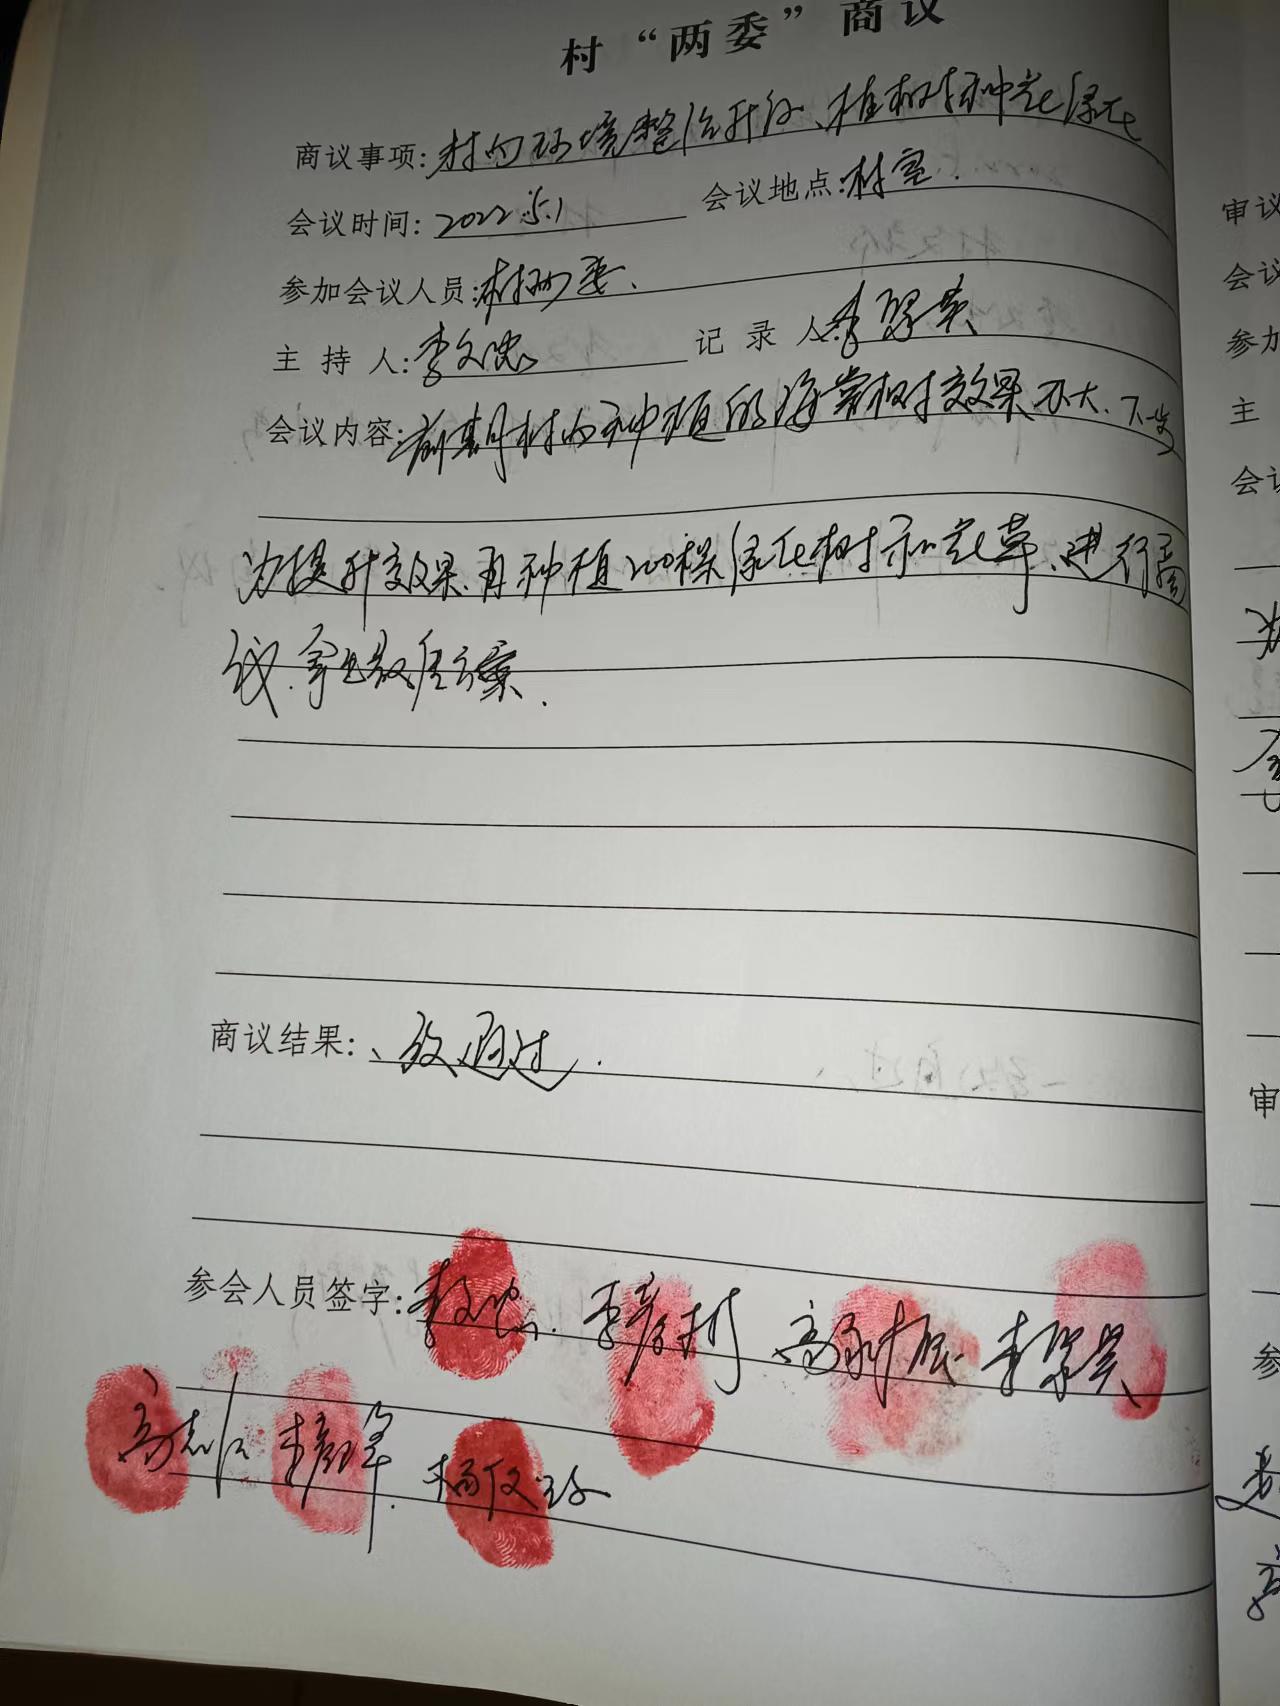 村“两委”商议
商议事项:村内环境整治升级、植树种花绿化
会议时间:2022.5.1 会议地点:村室.
参加会议人员:村两委.
主持人:李文忠 记录人:李翠英
会议内容:前期村内种植的海棠树效果不大.下步
为提升效果.再种植200棵绿化树和花草.进行商
议.拿出最佳方案.
商议结果:一致通过.
参会人员签字:李文忠.李彦村
审议
会议
参加
主
会议
审
参